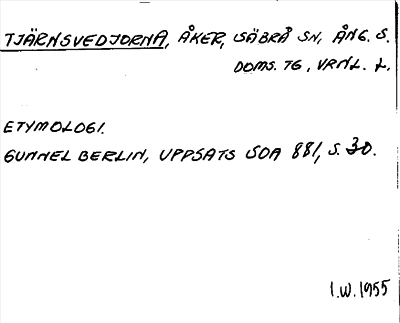 TJÄRNSVEDJORNA, ÅKER, SÄBRÅ SN, ÅNG. S.
DOMS. TG, VRNL. L.
ETYMOLOGI.
GUNNEL BERLIN, UPPSATS SOA 881, S. 30.
I.W. 1955